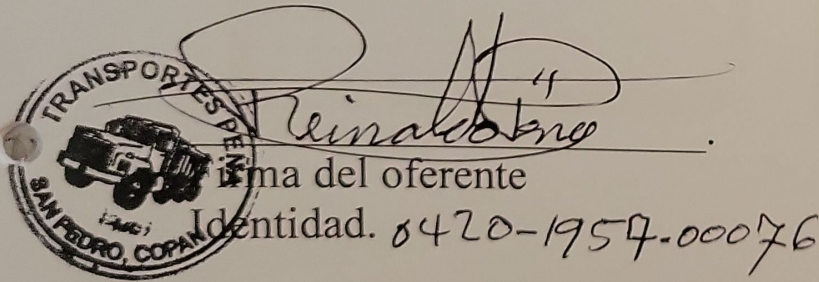 TRANSPORTES PEÑA
SAN PEDRO, COPAN
Reinaldo Peña
Firma del oferente
Identidad. 0420-1957-00076